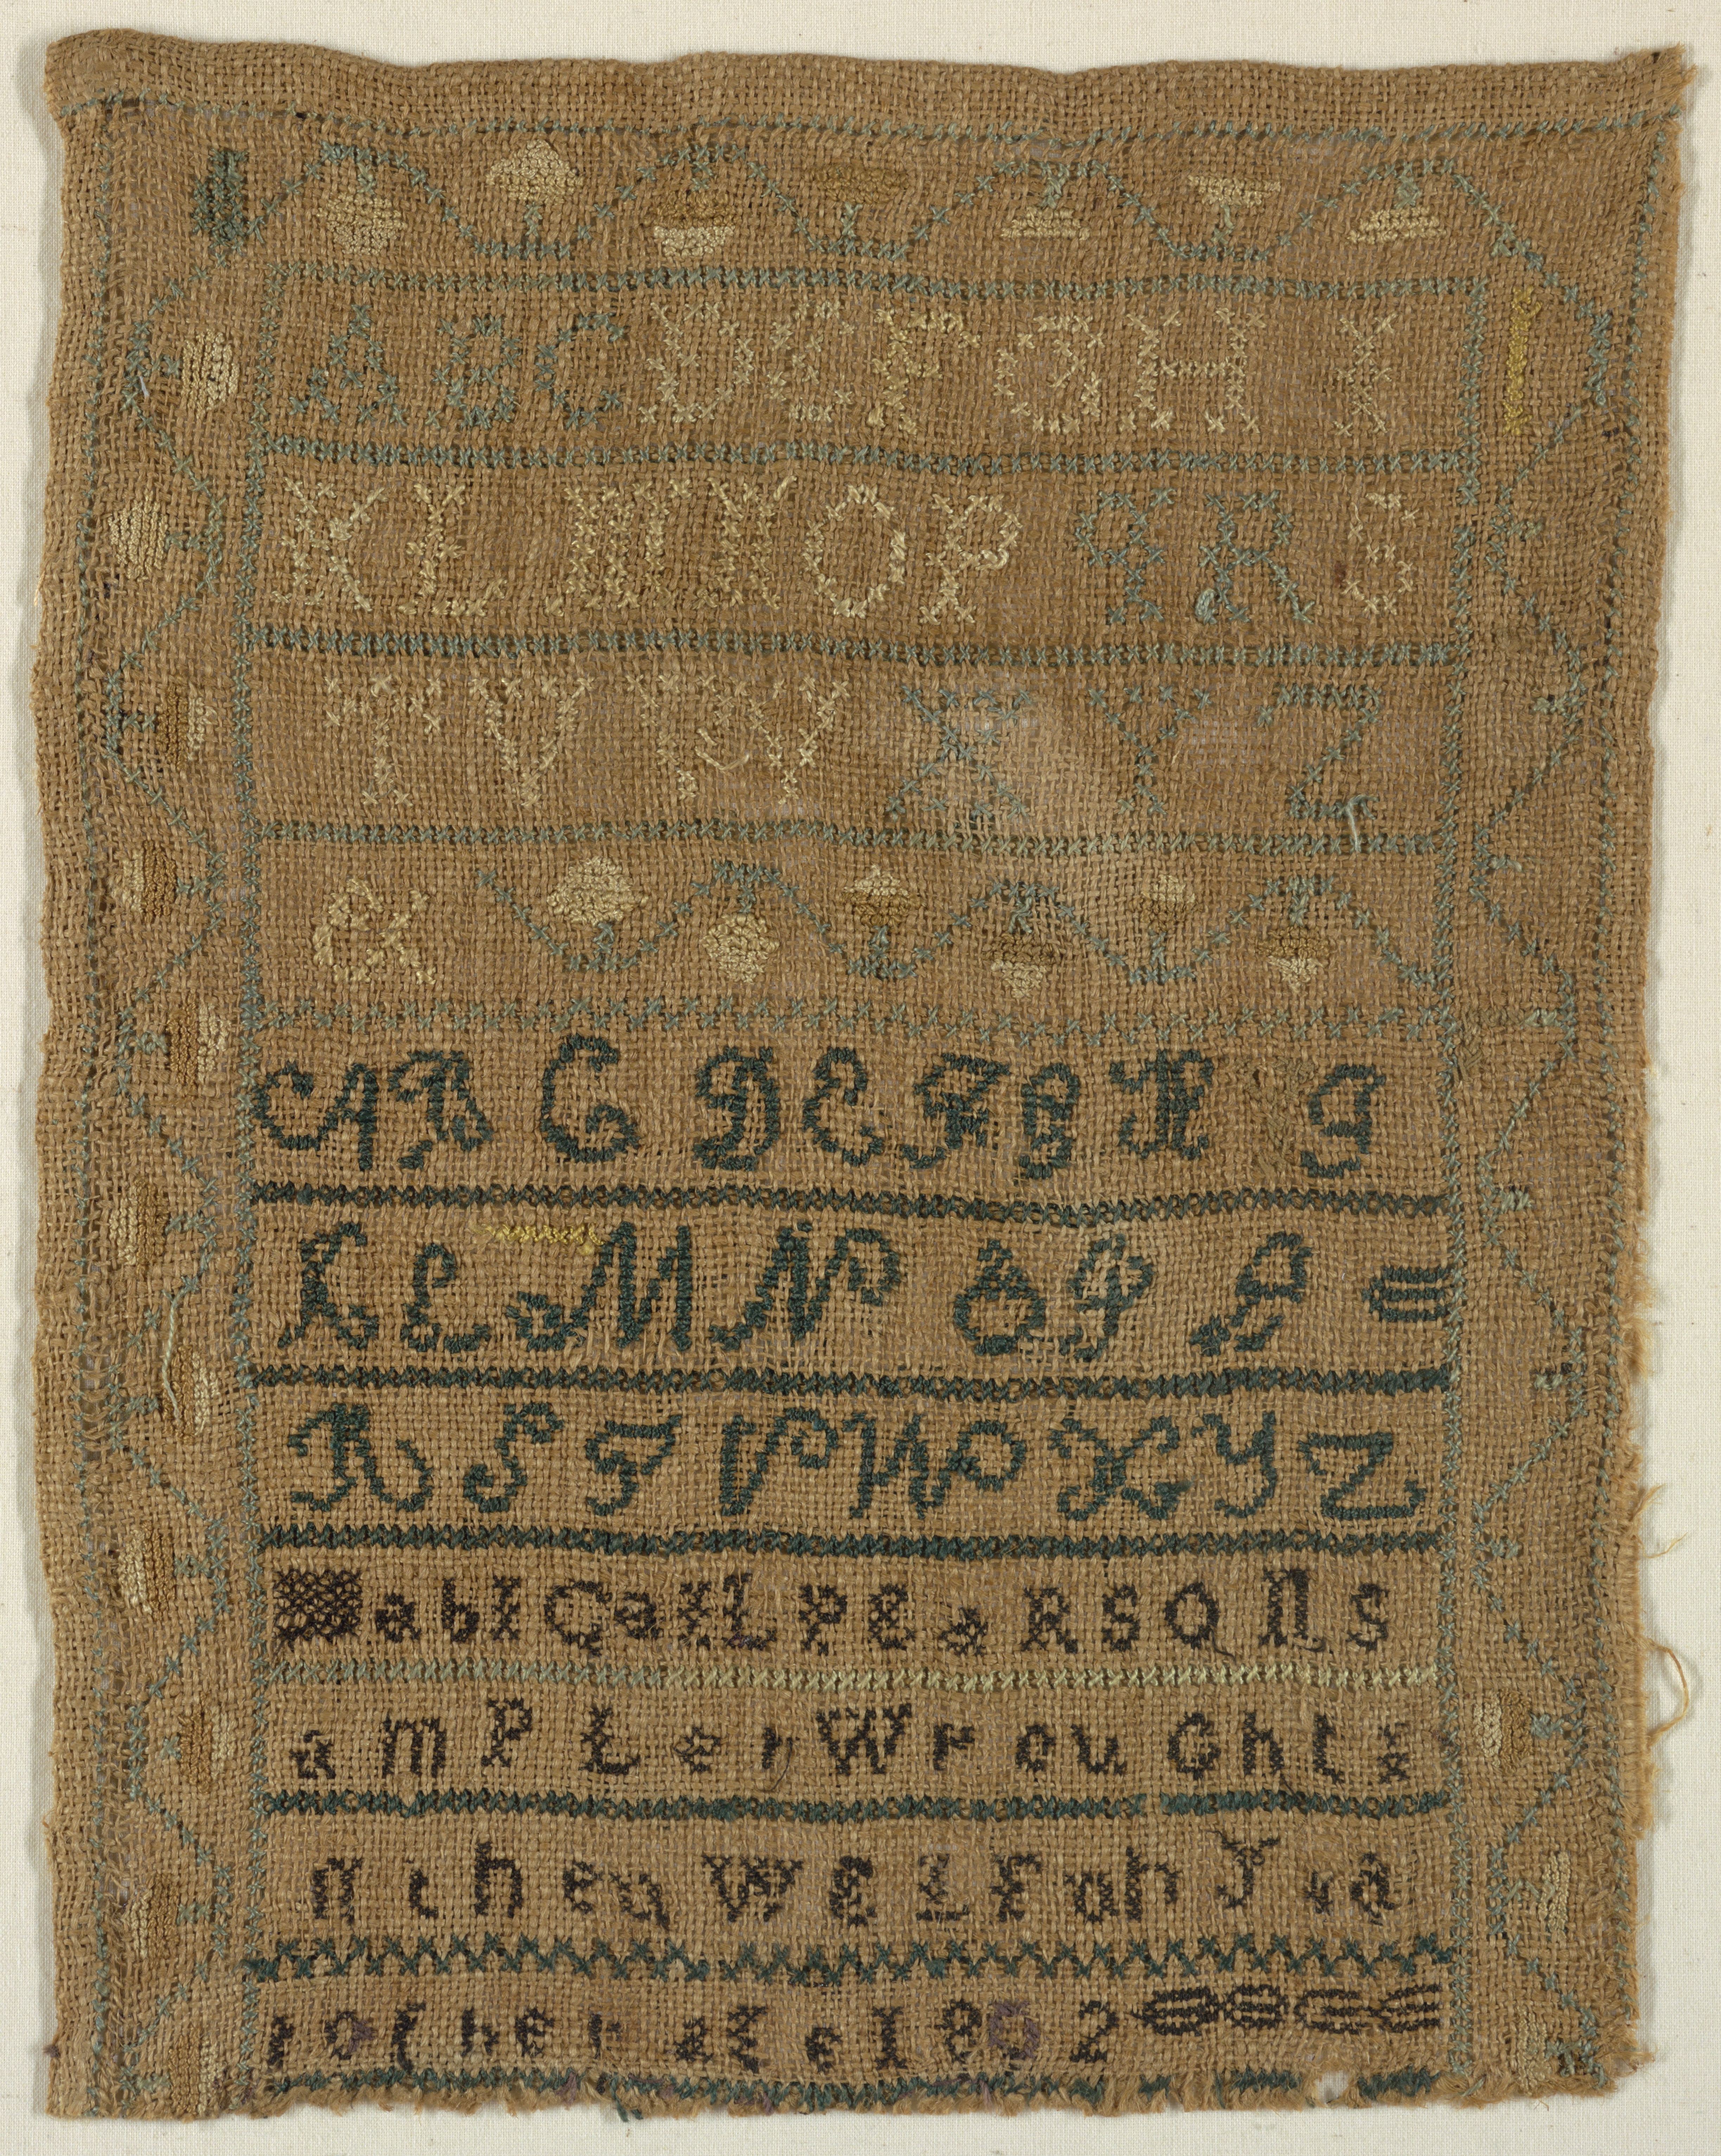 A B C D E F G H I
K L M N O P Q R S
T V W X Y Z
&
A B C D E F G H I
K L M N O P Q
R S T V W X Y Z
abIGaiL PEaRSONs
amPLer WrouGht i
n the tWELFth Yea
r of hEr aGe 1802